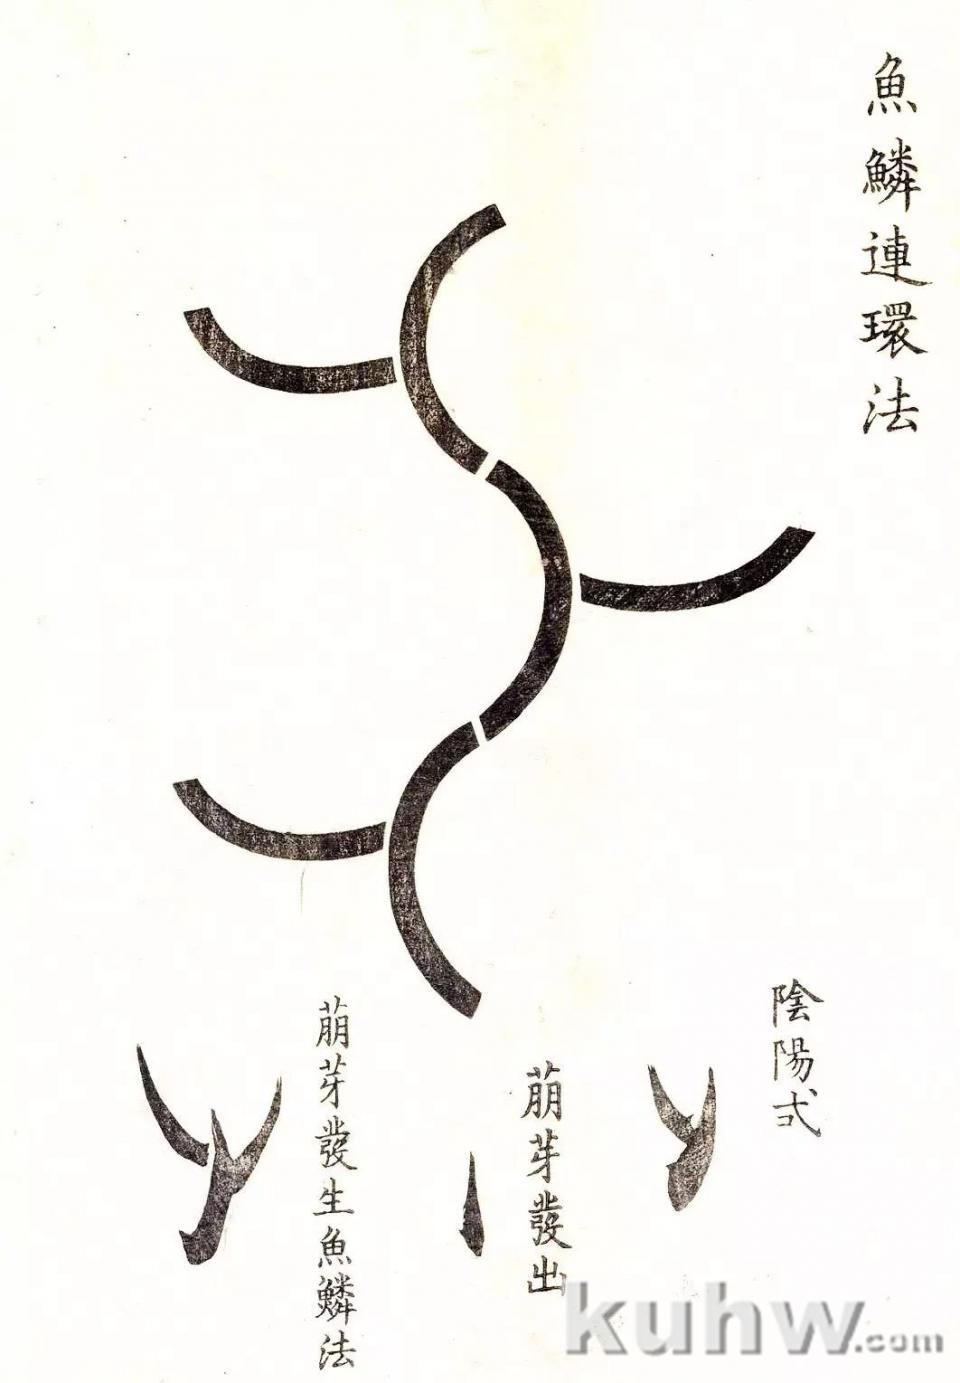 魚鱗連環法
陰陽式
萠芽發出
萠芽發生魚鱗法
kuhw.com